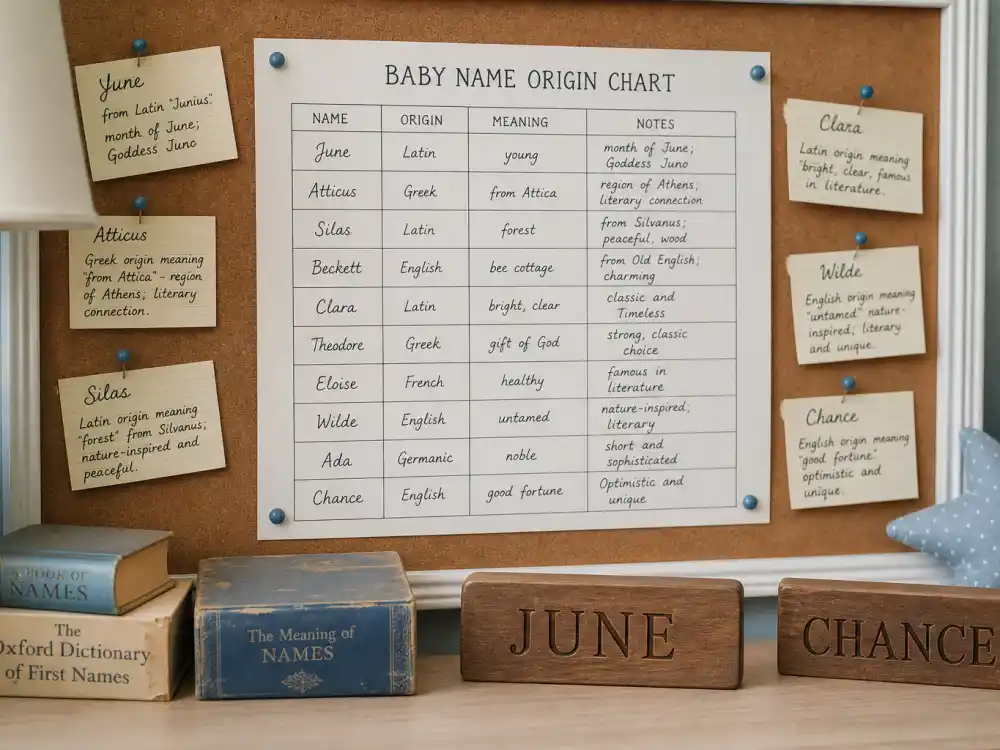 June
from Latin "Junius".
month of June;
Goddess Juno
Atticus
Greek origin meaning
"from Attica" - region
of Athens; literary
connection.
Silas
Latin origin meaning
"forest" from Silvanus;
nature-inspired and
peaceful.
BABY NAME ORIGIN CHART
NAME ORIGIN MEANING NOTES
June Latin young month of June; Goddess Juno
Atticus Greek from Attica region of Athens; literary connection
Silas Latin forest from Silvanus; peaceful, wood
Beckett English bee cottage from Old English; charming
Clara Latin bright, clear classic and Timeless
Theodore Greek gift of God strong, classic choice
Eloise French healthy famous in literature
Wilde English untamed nature-inspired; literary
Ada Germanic noble short and sophisticated
Chance English good fortune Optimistic and unique
Clara
Latin origin meaning
"bright, clear, famous
in literature.
Wilde
English origin meaning
"untamed" nature-
inspired; literary
and unique.
Chance
English origin meaning
"good fortune"
optimistic and
unique.
A BOOK OF
NAMES
The
Oxford Dictionary
of First Names
The Meaning of
NAMES
JUNE
CHANCE